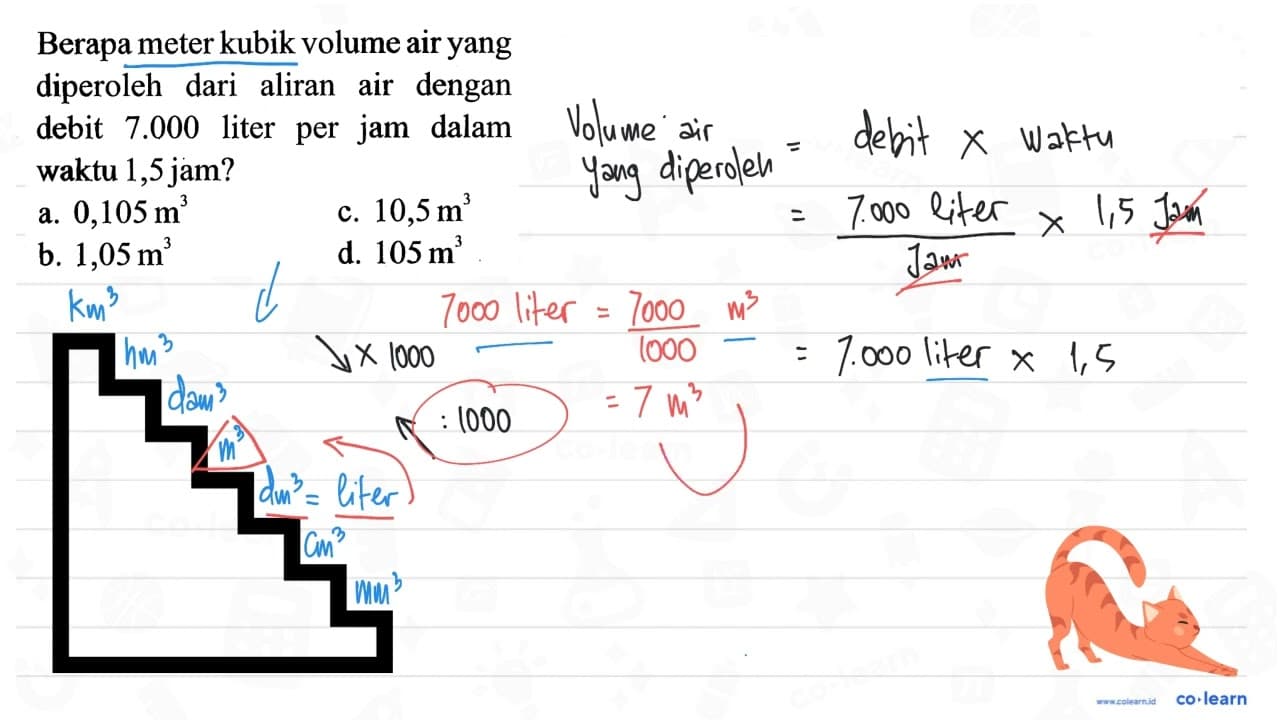 Berapa meter kubik volume air yang
diperoleh dari aliran air dengan
debit 7.000 liter per jam dalam
waktu 1,5 jam?
a. 0,105 m³
c. 10,5 m³
b. 1,05 m³
d. 105 m³
Volume air
yang diperoleh = debit x waktu
= 7.000 liter / Jam x 1,5 Jam
= 7.000 liter x 1,5
7000 liter = 7000 / 1000 m³
= 7 m³
x 1000
: 1000
km³
hm³
dam³
m³
dm³ = liter
cm³
mm³
www.colearn.id
co·learn